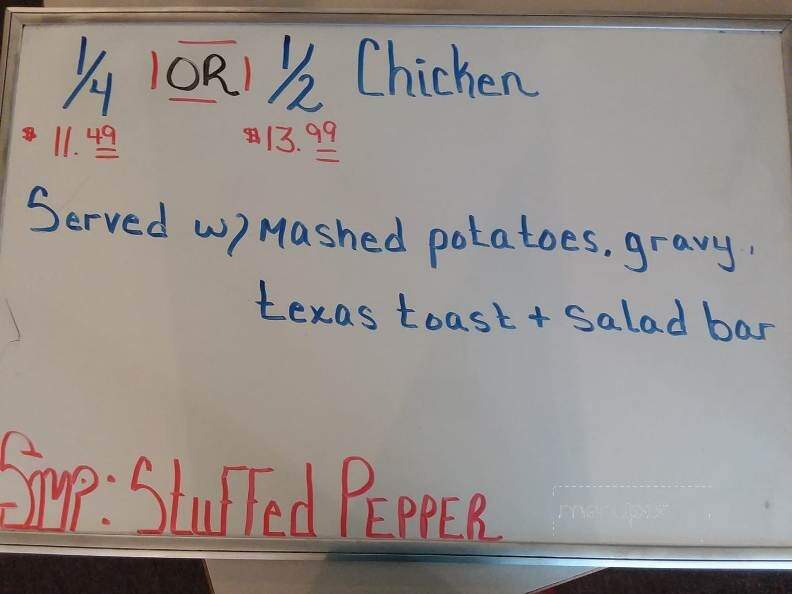 1/4 OR 1/2 Chicken
$11.49 $13.99
Served w/ Mashed potatoes, gravy,
texas toast + salad bar
Smp: Stuffed Pepper